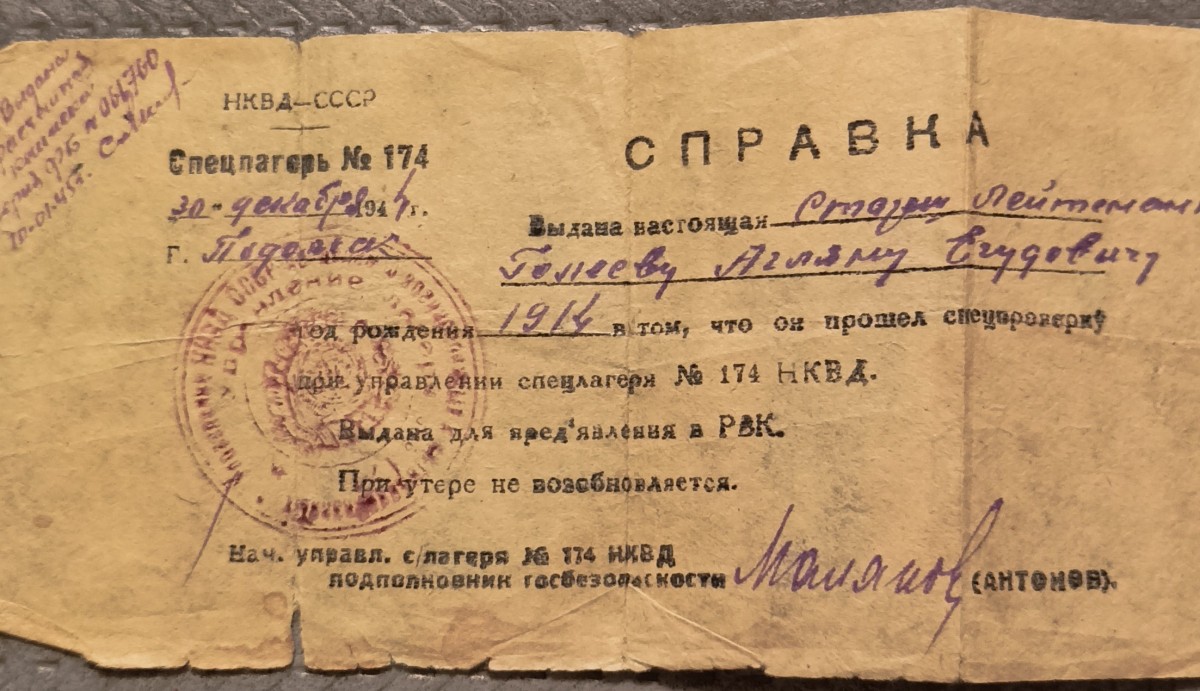 Выдана
серия ФБ № 061760
10.01.45г.
НКВД–СССР
Спецлагерь № 174
30 - декабря 1944 г.
г. Подольск
СПРАВКА
Выдана настоящая Старш Лейтенант
Агляму Егудовичу
год рождения 1914 в том, что он прошел спецпроверку
при управлении спецлагеря № 174 НКВД.
Выдана для пред'явления в РВК.
При утере не возобновляется.
Нач. управл. с/лагеря № 174 НКВД
подполковник госбезопасности (АНТОНОВ).
Управление